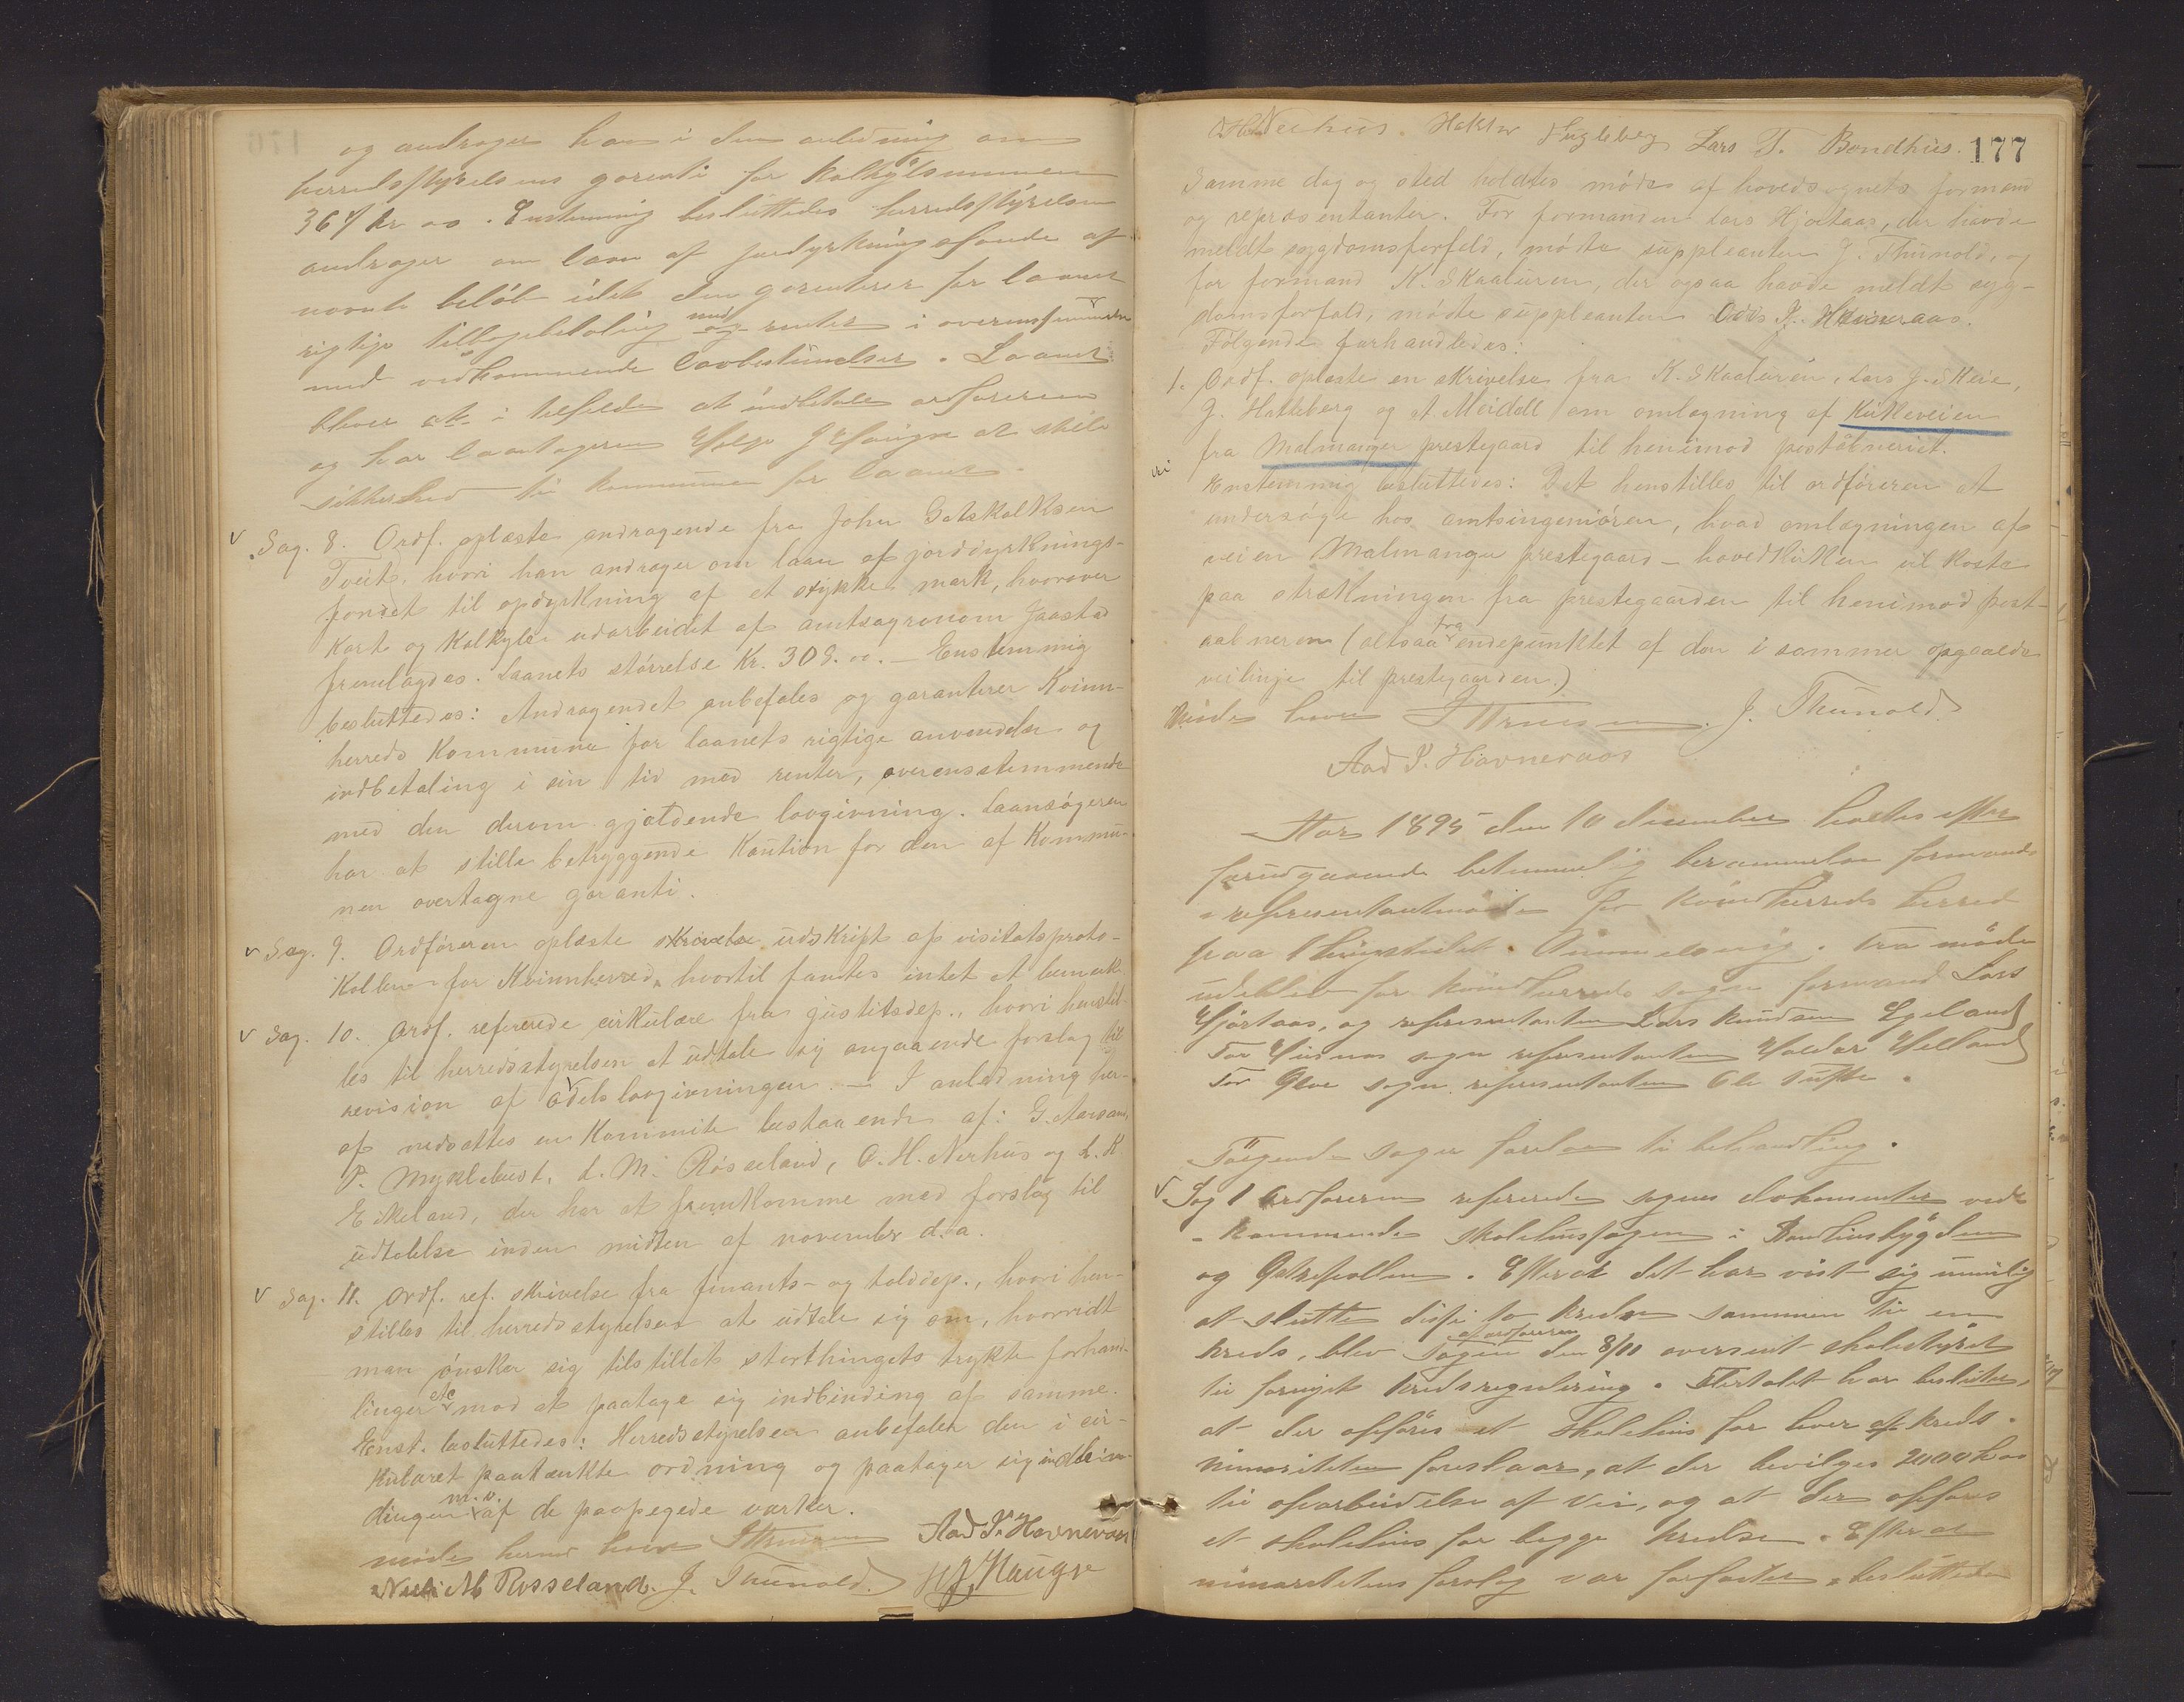 og andrager han i den anledning om
herredsstyrelsens garanti for kalkylsummen
364 kr oo. Enstemmig besluttedes herredsstyrelsen
andrager om laan af jordyrkningsfondet af
nævnte beløb idet den garanterer for laanets
rigtige tilbagebetaling med renter i overensstemmelse
med vedkommende lovbestemmelser. Laanet
bliver at i tilfælde at indbetale ordføreren
og har laantageren Helge J Haugse at stille
sikkerhed til kommunen for laanet.
Sag. 8. Ordf. oplæste andragende fra John Gotskalksen
Tveit, hvori han andrager om laan af jorddyrknings-
fondet til opdyrkning af et stykke mark, hvorover
kart og kalkyle udarbeidet af amtsagronom Jaastad
fremlagdes. Laanets størrelse Kr. 308.oo. – Enstemmig
besluttedes: Andragendet anbefales og garanterer Kvinn-
herreds Kommune for laanets rigtige anvendelse og
indbetaling i sin tid med renter, overensstemmende
med den derom gjældende lovgivning. Laansøgeren
har at stille betryggende Kaution for den af Kommu-
nen overtagne garanti.
Sag. 9. Ordføreren oplæste skrivelse udskript af visitatsproto-
kollen for Kvinnherred, hvortil fandtes intet at bemærke.
Sag. 10. Ordf. refererede cirkulære fra justitsdep., hvori henstil-
les til herredsstyrelsen at udtale sig angaaende forslag til
revision af odelslovgivningen. – I anledning her-
af nedsattes en Kommite bestaaende af: G. Aarsand,
P. Myklebust, L. M. Røsseland, O. H. Nerhus og L. K.
Eikeland, der har at fremkomme med forslag til
udtalelse inden midten af november d.a.
Sag. 11. Ordf. ref. skrivelse fra finants- og tolddep., hvori hen-
stilles til herredsstyrelsen at udtale sig om, hvorvidt
man ønsker sig tilstillet storthingets trykte forhand-
linger etc mod at paatage sig indbinding af samme.
Enst. besluttedes: Herredsstyrelsen anbefaler den i cir-
kulæret paatænkte ordning og paatager sig indbin-
dingen m.v. af de paapegede værker.
møde hermed hævet Aad P. Havneraas
Nils M Røsseland. J. Thunold. H J Haugse
O H Nerhus. Haktor Fugleberg Lars T. Bondhus. 177
Samme dag og sted holdtes møde af hovedsognets formænd
og repræsentanter. For formanden Lars Hjortaas, der havde
meldt sygdomsforfald, mødte suppleanten J. Thunold, og
for formand K. Skaaluren, der ogsaa havde meldt syg-
domsforfald, mødte suppleanten Odd P. Havneraas.
Følgende forhandledes:
1. Ordf. oplæste en skrivelse fra K. Skaaluren, Lars J. Skeie,
J. Hatteberg og A Meidell om omlægning af Kirkeveien
fra Malmanger prestegaard til henimod postaabneriet.
Enstemmig besluttedes: Det henstilles til ordføreren at
undersøge hos amtsingeniøren, hvad omlægningen af
veien Malmanger prestegaard – hovedkirken vil koste
paa strækningen fra prestegaarden til henimod post-
aabneren (altsaa fra endepunktet af den i sommer opgaaede
veilinje til prestegaarden.)
Møde hævet J. Thunold
Aad P. Havneraas
Aar 1895 den 10 december holdtes efter
forudgaaende betimmelig berammelse formands
- representantmøde for Kvindherreds herred
paa thingstedet Ommelsvig. Fra møde
udeblev for Kvindherreds sogn formand Lars
Hjortaas, og representanten Lars Knudsen Egeland
For Husnes sogn representanten Haldor Helland
For Ølve sogn representanten Ole Tufte.
Følgende sager forelaa til behandling.
Sag 1 Ordføreren refererede sagens dokumenter ved-
kommende skolehussagen i
og Østrepollen. Efterat det har vist sig umulig
at slutte disse to kredse sammen til en
kreds, blev sagen af ordføreren den 8/10 oversent skolestyret
til fornyet kredsregulering. Flertalet har besluttet,
at der opføres et skolehus for hver af kreds.
minoriteten foreslaar, at der bevilges 2000 kr
til oparbeidelse af vei, og at der opføres
et skolehus for begge kredse. Efterat
minoritetens forslag var forkastet, besluttedes